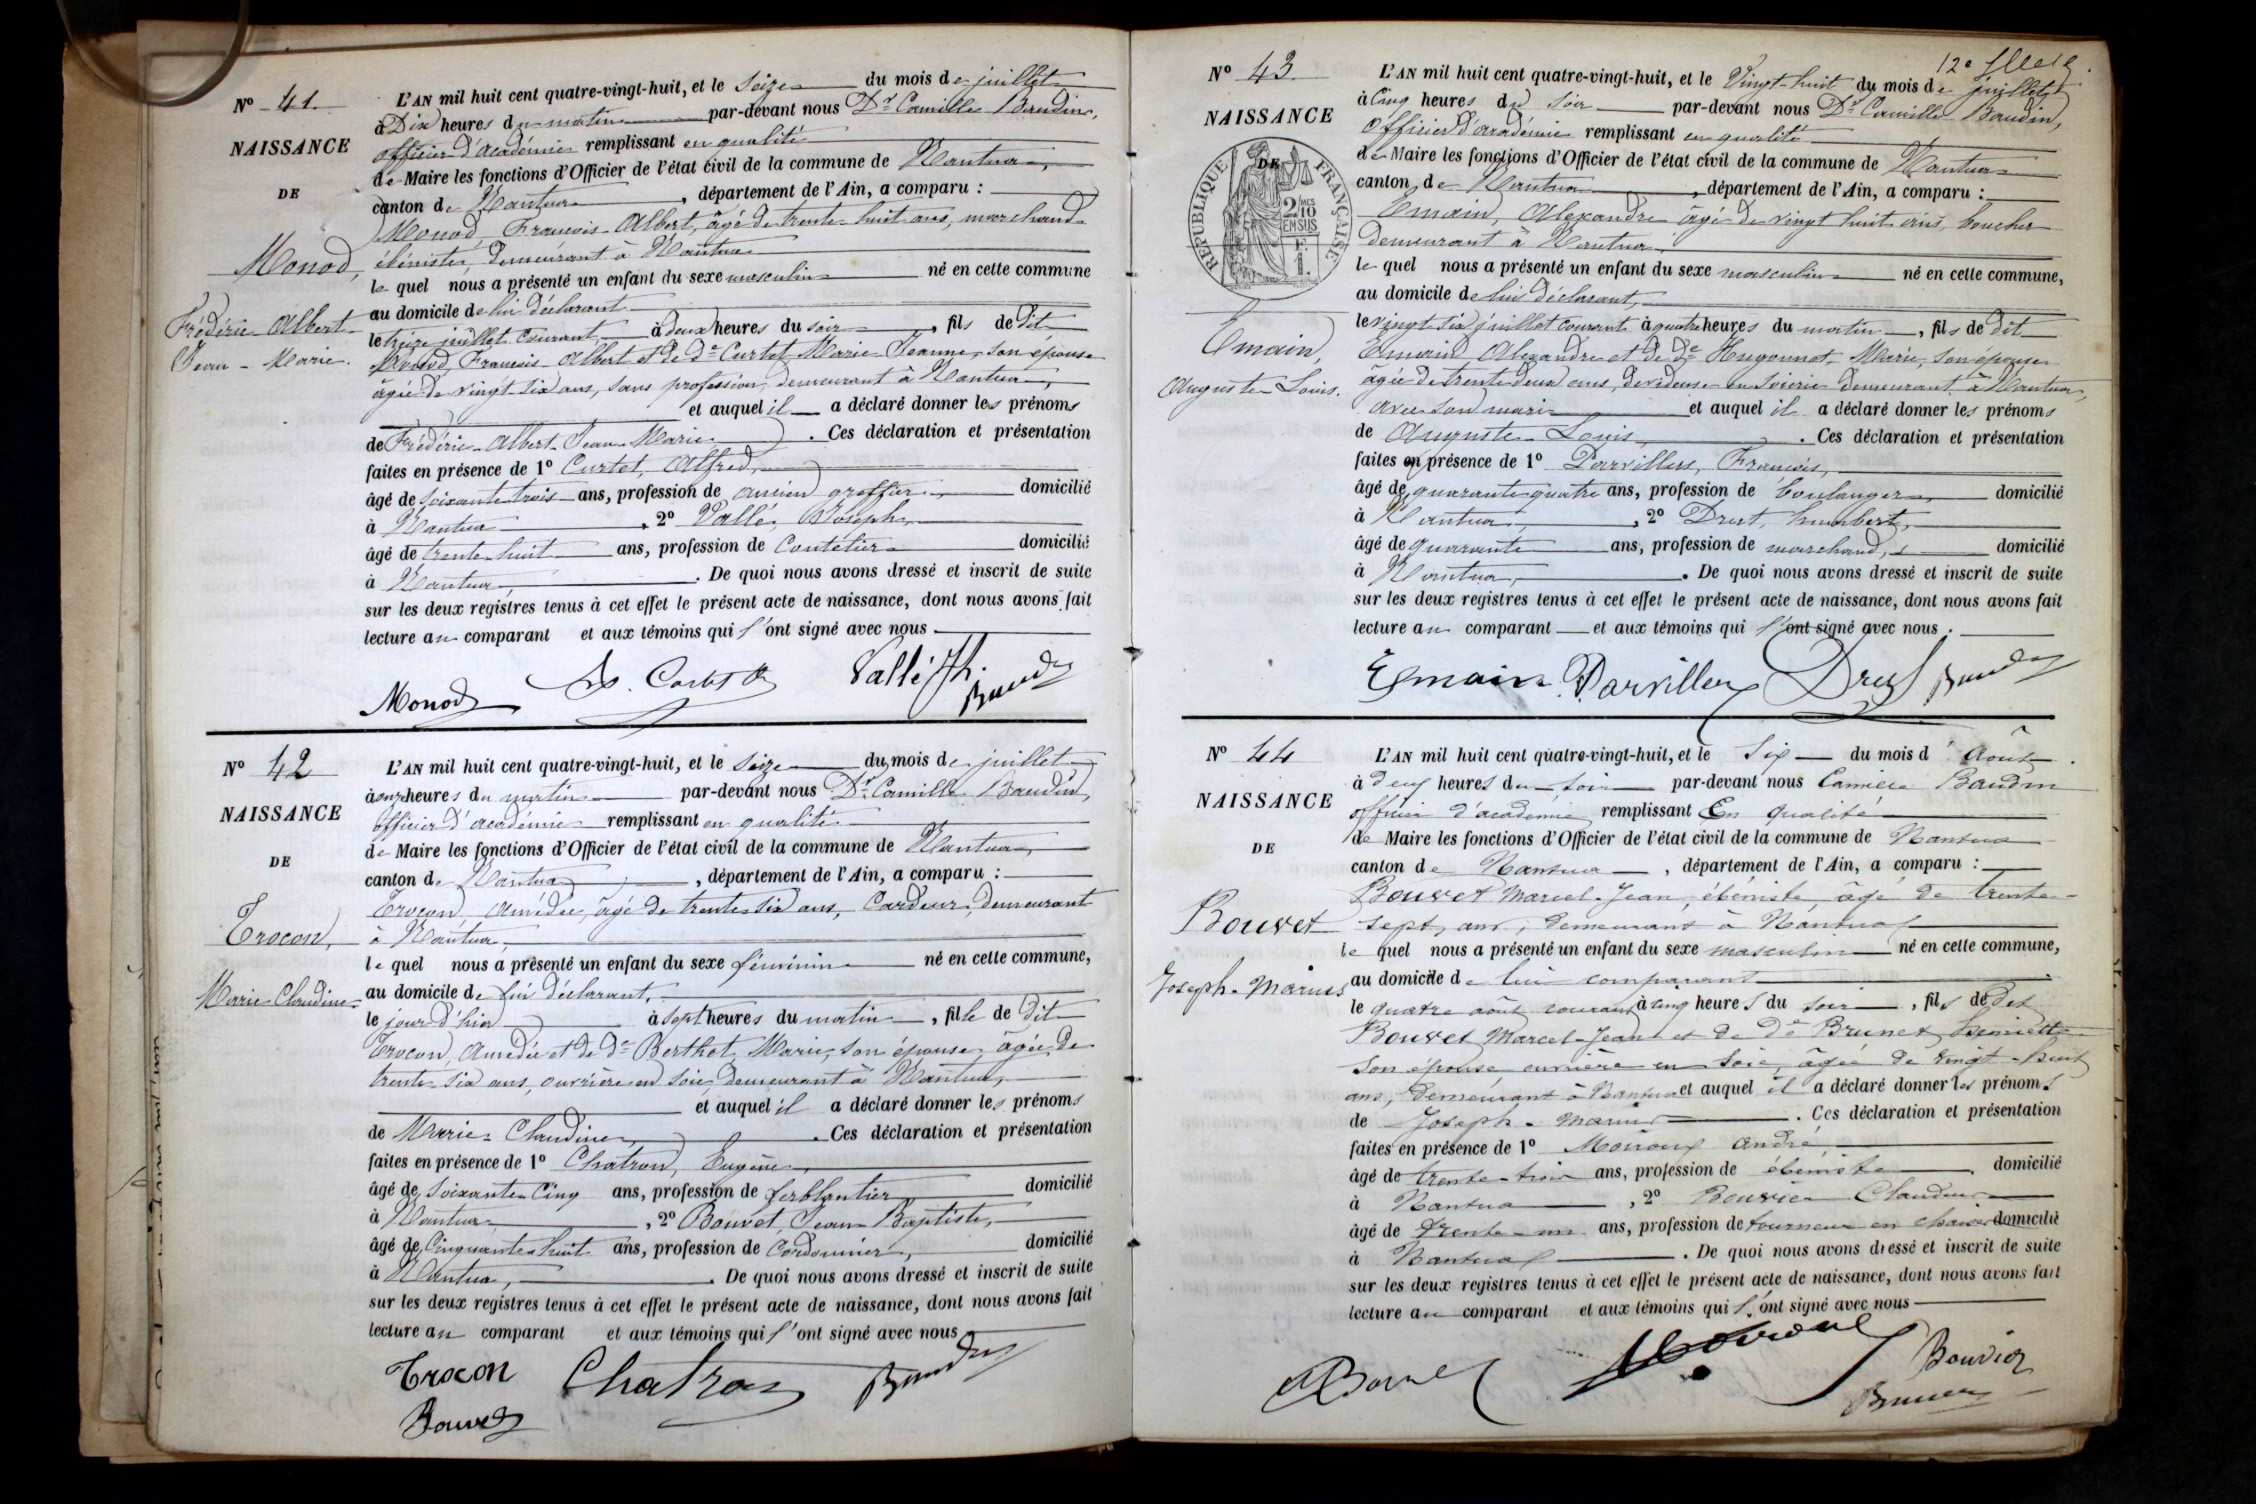 Nº 41.
NAISSANCE
DE
Monod,
Frédéric Albert
Jean-Marie.
L'AN mil huit cent quatre-vingt-huit, et le Seize du mois de juillet
à Dix heures du matin par-devant nous Dr Camille Baudin,
officier d'académie remplissant en qualité
de Maire les fonctions d'Officier de l'état civil de la commune de Nantua,
canton de Nantua, département de l'Ain, a comparu :
Monod, François-Albert, âgé de trente-huit ans, marchand
ébéniste, demeurant à Nantua
le quel nous a présenté un enfant du sexe masculin né en cette commune
au domicile de lui déclarant
le treize juillet courant à deux heures du soir, fils de dit
Monod, François-Albert et de de Curtet Marie Jeanne, son épouse
âgée de vingt six ans, sans profession, demeurant à Nantua,
et auquel il a déclaré donner les prénoms
de Frédéric-Albert-Jean-Marie. Ces déclaration et présentation
faites en présence de 1º Curtet, Alfred,
âgé de soixante trois ans, profession de ancien greffier, domicilié
à Nantua, 2º Vallé, Joseph,
âgé de trente-huit ans, profession de Coutelier domicilié
à Nantua, . De quoi nous avons dressé et inscrit de suite
sur les deux registres tenus à cet effet le présent acte de naissance, dont nous avons fait
lecture au comparant et aux témoins qui l'ont signé avec nous
Monod Vallé Jh. Baudin
Nº 42
NAISSANCE
DE
Trocon,
Marie-Claudine
L'AN mil huit cent quatre-vingt-huit, et le Seize du mois de juillet
à onze heures du matin par-devant nous Dr Camille Baudin,
officier d'académie remplissant en qualité
de Maire les fonctions d'Officier de l'état civil de la commune de Nantua,
canton de Nantua, département de l'Ain, a comparu :
Trocon, Amédée, âgé de trente six ans, Cardeur, demeurant
à Nantua,
le quel nous a présenté un enfant du sexe féminin né en cette commune,
au domicile de lui déclarant,
le jour d'hier à sept heures du matin, fille de dit
Trocon, Amédée et de de Berthet, Marie, son épouse, âgée de
trente six ans, ouvrière en soie, demeurant à Nantua,
et auquel il a déclaré donner les prénoms
de Marie-Claudine, . Ces déclaration et présentation
faites en présence de 1º Chatron, Eugène,
âgé de soixante Cinq ans, profession de ferblantier domicilié
à Nantua, 2º Bouvet, Jean-Baptiste,
âgé de Cinquante-huit ans, profession de Cordonnier, domicilié
à Nantua, . De quoi nous avons dressé et inscrit de suite
sur les deux registres tenus à cet effet le présent acte de naissance, dont nous avons fait
lecture au comparant et aux témoins qui l'ont signé avec nous
Trocon Chatron Baudin
Bouvet
12e
Nº 43
NAISSANCE
DE
RÉPUBLIQUE FRANÇAISE
2/10 MES
EN SUS
Emain,
Auguste-Louis.
L'AN mil huit cent quatre-vingt-huit, et le Vingt-huit du mois de juillet
à Cinq heures du soir par-devant nous Dr Camille Baudin,
officier d'académie remplissant en qualité
de Maire les fonctions d'Officier de l'état civil de la commune de Nantua
canton de Nantua, département de l'Ain, a comparu :
Emain, Alexandre âgé de vingt huit ans, boucher
demeurant à Nantua
le quel nous a présenté un enfant du sexe masculin né en cette commune,
au domicile de lui déclarant,
le vingt six juillet courant à quatre heures du matin, fils de dit
Emain Alexandre et de de Hugonnot, Marie, son épouse
âgée de trente deux ans, dévideuse en soierie demeurant à Nantua,
avec son mari et auquel il a déclaré donner les prénoms
de Auguste-Louis. Ces déclaration et présentation
faites en présence de 1º Darvillers, François,
âgé de quarante quatre ans, profession de boulanger domicilié
à Nantua, 2º Drut, humbert,
âgé de quarante ans, profession de marchand, domicilié
à Nantua, . De quoi nous avons dressé et inscrit de suite
sur les deux registres tenus à cet effet le présent acte de naissance, dont nous avons fait
lecture au comparant et aux témoins qui l'ont signé avec nous.
Emain Darviller Drut Baudin
Nº 44
NAISSANCE
DE
Bouvet
Joseph-Marius
L'AN mil huit cent quatre-vingt-huit, et le Six du mois d'Août
à deux heures du soir par-devant nous Camille Baudin
officier d'académie remplissant En qualité
de Maire les fonctions d'Officier de l'état civil de la commune de Nantua
canton de Nantua, département de l'Ain, a comparu :
Bouvet Marcel-Jean, ébéniste, âgé de trente-
sept ans, demeurant à Nantua
le quel nous a présenté un enfant du sexe masculin né en cette commune,
au domicile de lui comparant
le quatre août courant à cinq heures du soir, fils de dit
Bouvet Marcel-Jean et de de Brunet Henriette
son épouse, ouvrière en soie, âgée de vingt-huit
ans, demeurant à Nantua et auquel il a déclaré donner les prénoms
de Joseph-Marius. Ces déclaration et présentation
faites en présence de 1º Moiroux André,
âgé de trente-trois ans, profession de ébéniste domicilié
à Nantua, 2º Bouvier Claudius
âgé de trente-un ans, profession de tourneur en chaises domicilié
à Nantua . De quoi nous avons dressé et inscrit de suite
sur les deux registres tenus à cet effet le présent acte de naissance, dont nous avons fait
lecture au comparant et aux témoins qui l'ont signé avec nous
Bouvet Moiroux Bouvier